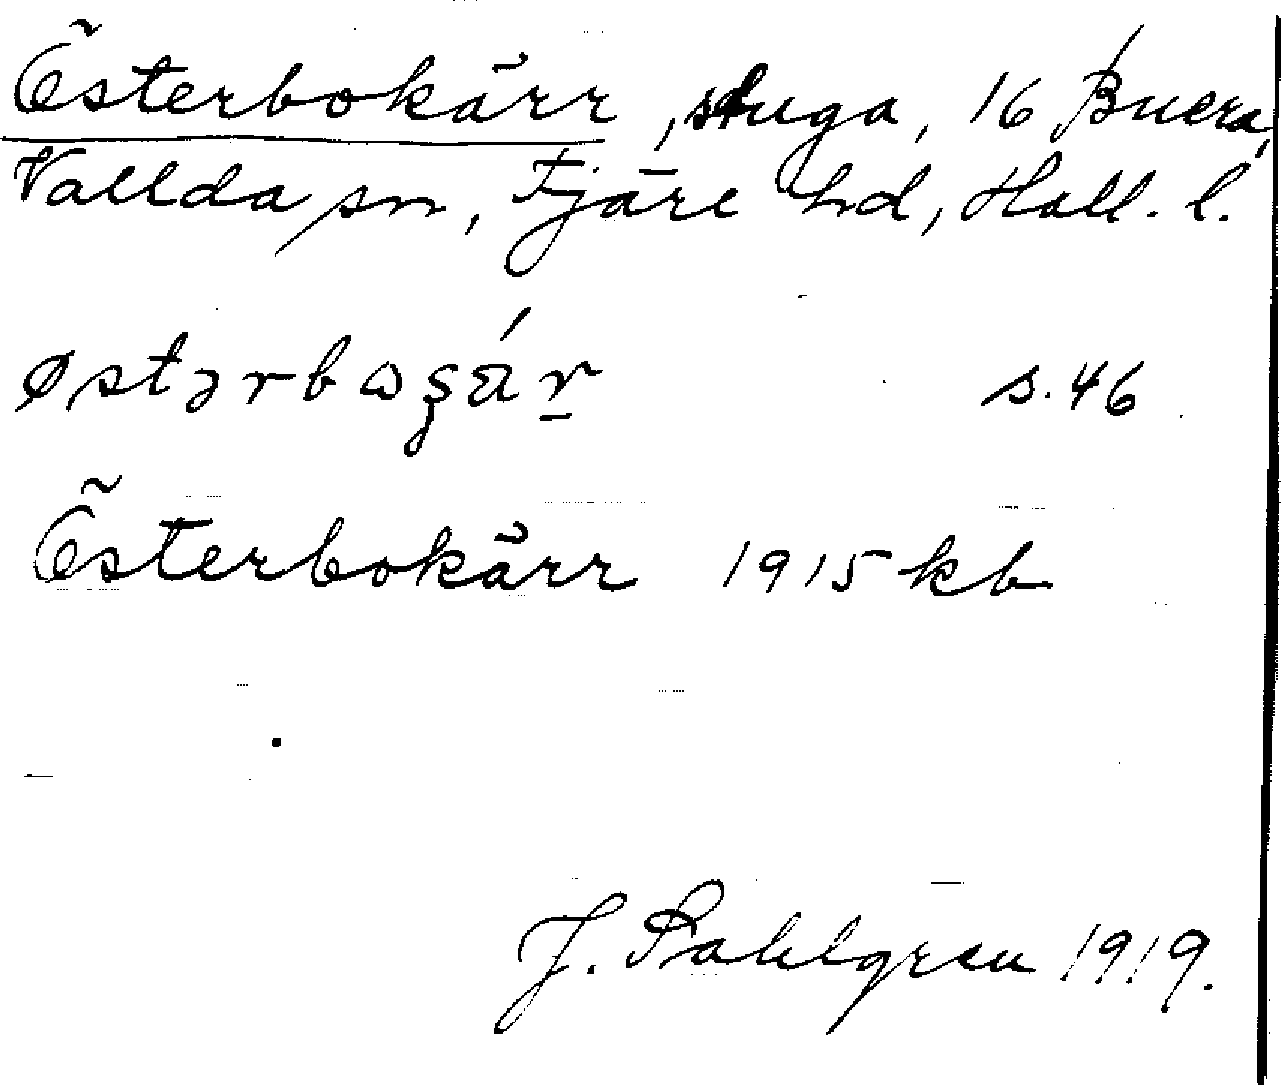 Österbokärr, stuga, 16 Buera,
Vallda sn, Fjäre hd, Hall. l.
s. 46
Österbokärr 1915 kb
J. Sahlgren 1919.